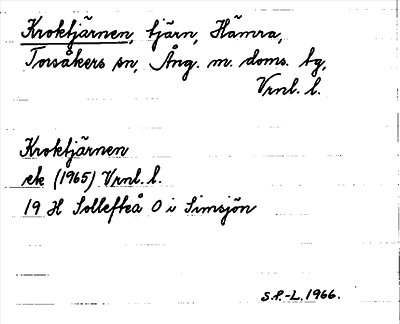 Kroktjärnen, tjärn, Hämra,
Torsåkers sn, Ång. m. doms. tg,
Vrnl. l.
Kroktjärnen
ek (1965) Vrnl. l.
19 H Sollefteå O i Simsjön
S.P.-L. 1966.